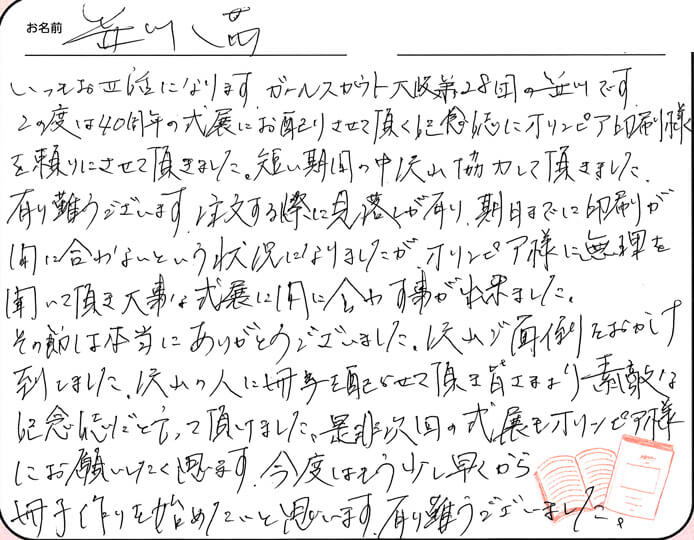 お名前 並川 茜
いつもお世話になります。ガールスカウト大阪第28団の並川です。
この度は40周年の式展にお配りさせて頂く記念誌にオリンピア印刷様
を頼りにさせて頂きました。短い期間の中沢山協力して頂きました。
有り難うございます。注文する際に見落しが有り、期日までに印刷が
間に合わないという状況になりましたが、オリンピア様に無理を
聞いて頂き大事な式展に間に合わす事が出来ました。
その節は本当にありがとうございました。沢山ご面倒をおかけ
致しました。沢山の人に冊子を配らせて頂き皆さまより素敵な
記念誌だと言って頂けました。是非次回の式展もオリンピア様
にお願いしたく思います。今度はもう少し早くから
冊子作りを始めたいと思います。有り難うございました。